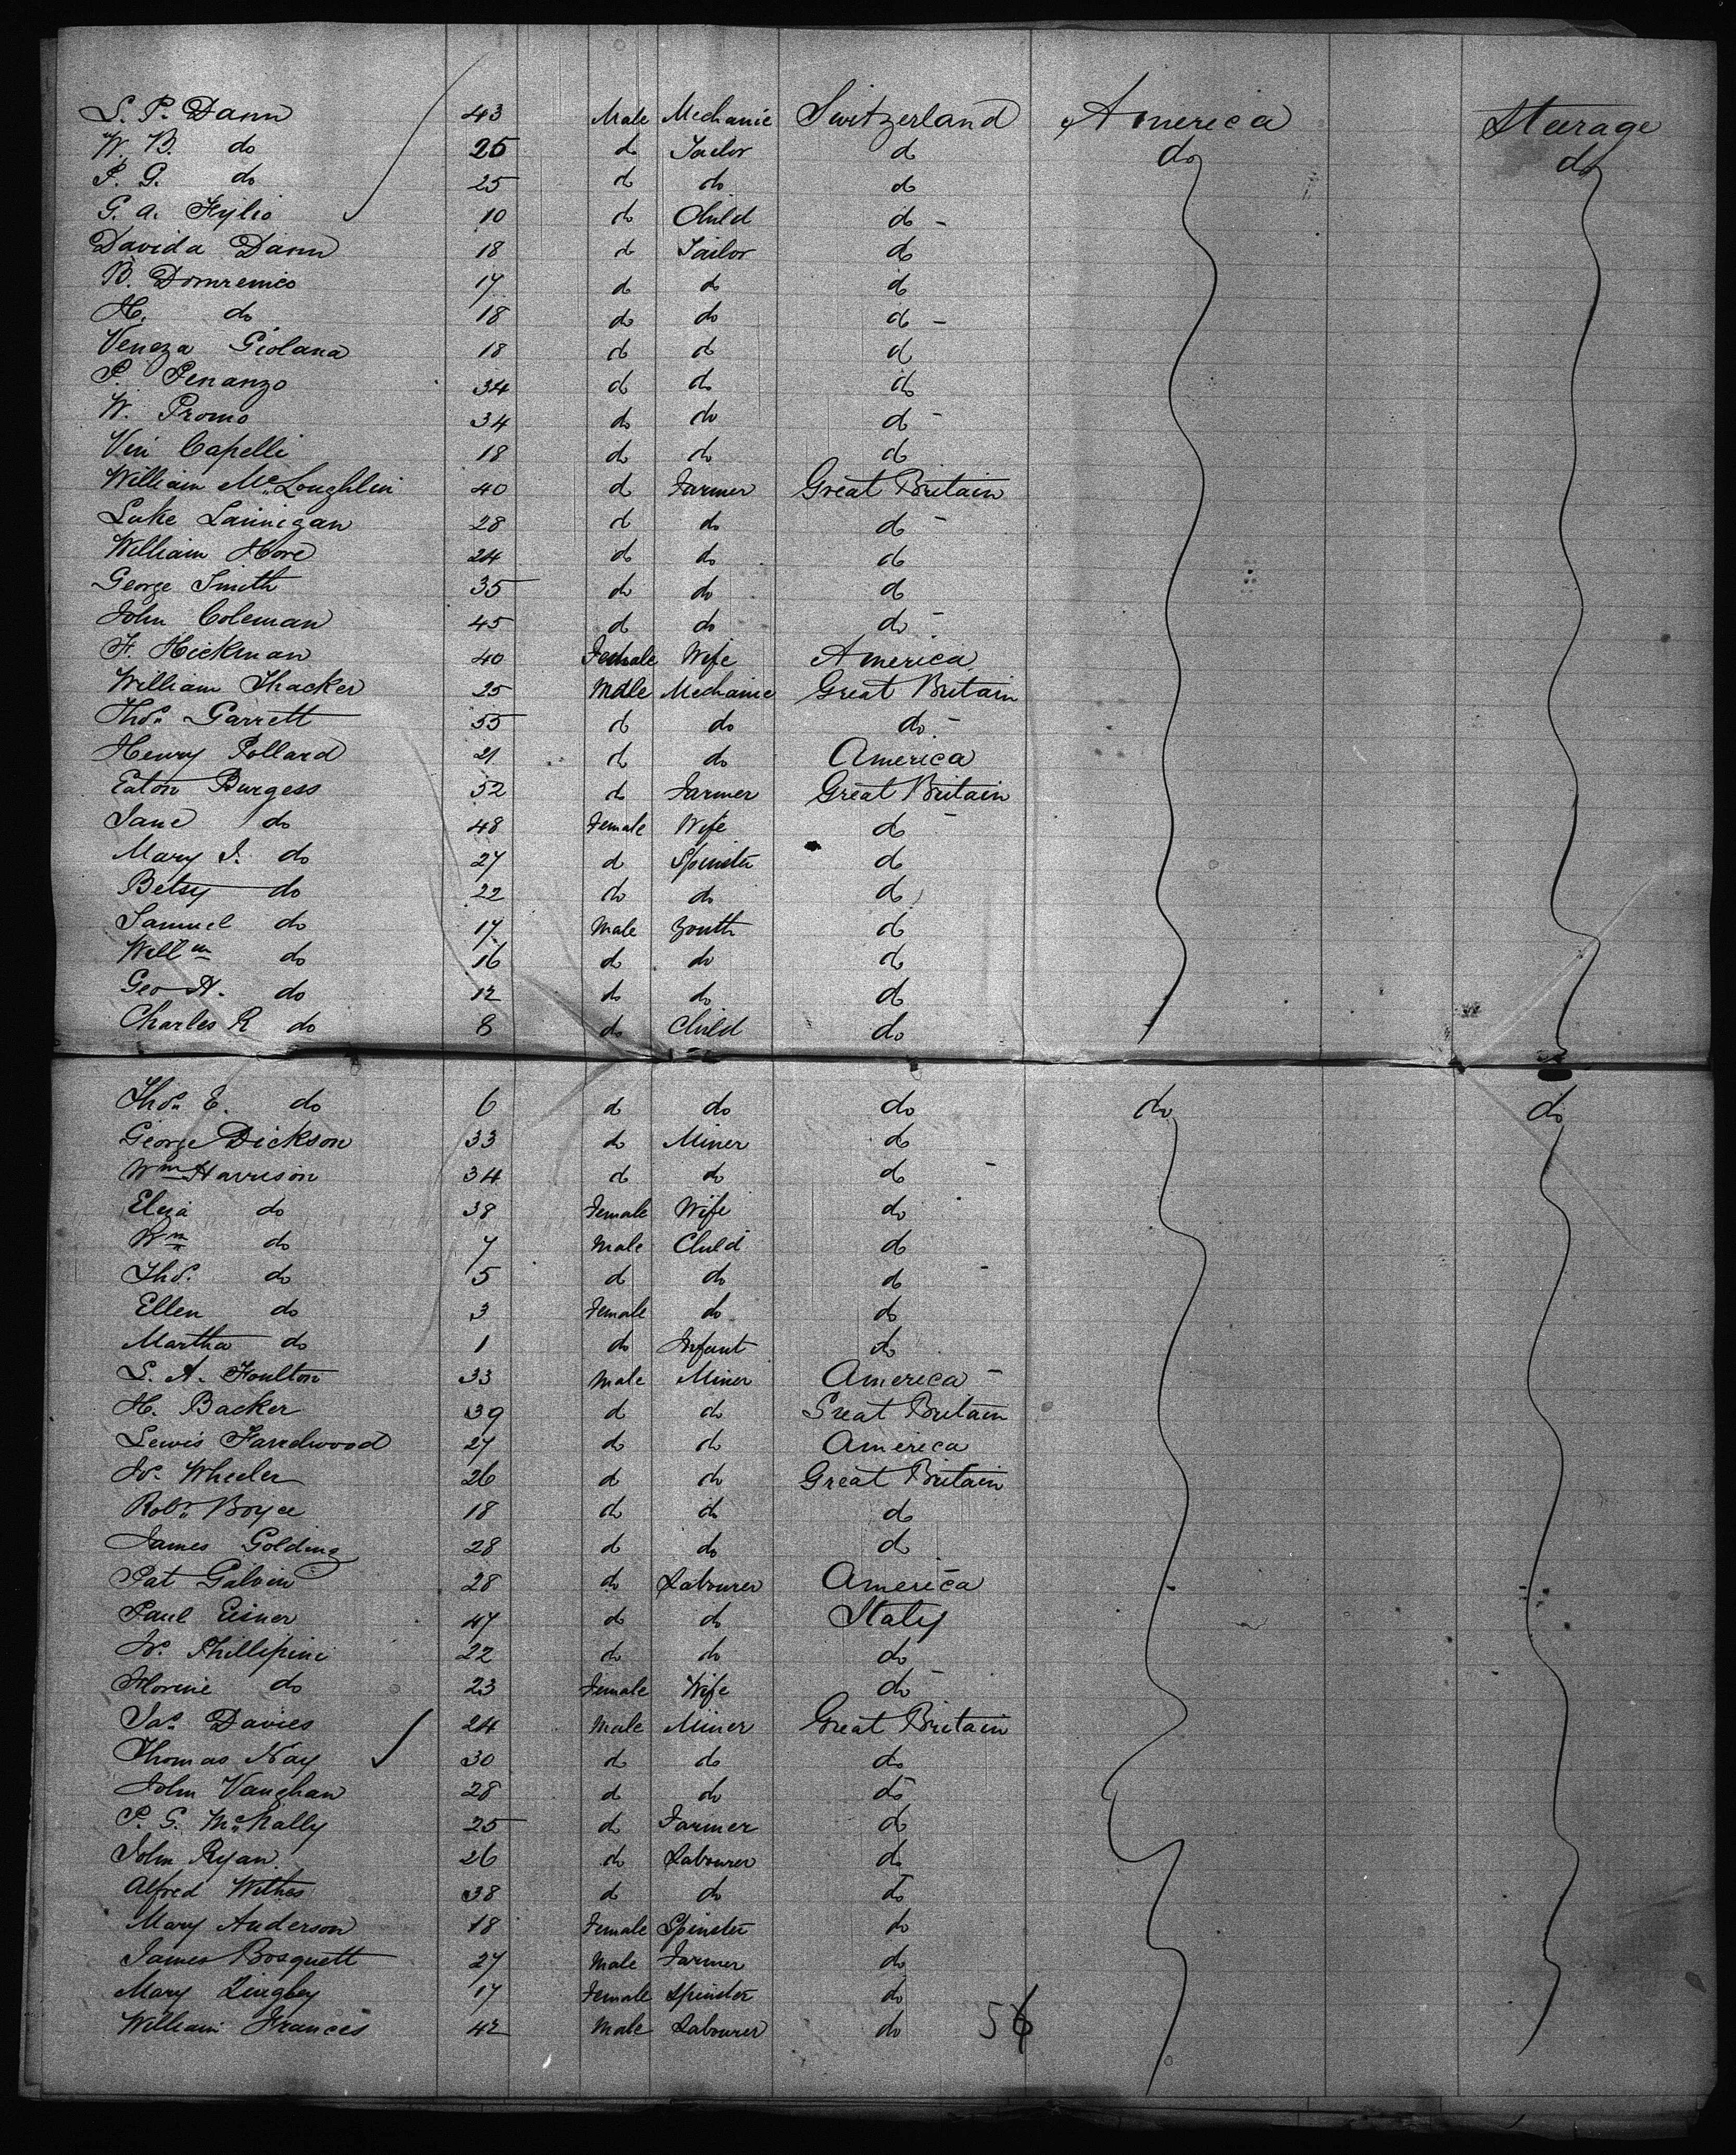 S. P. Dann 43 Male Mechanic Switzerland America Steerage
W. B. do 25 do Tailor do do do
P. G. do 25 do do do
G. A. 10 do Child do -
Davida Dann 18 do Tailor do
B. Domrenico 17 do do do
H. do 18 do do do -
Veneza Giolana 18 do do do
P. Penanzo 34 do do do
W. Promo 34 do do do -
Vin Capelli 18 do do do
William McLoughlin 40 do Farmer Great Britain
Luke Lannigan 28 do do do -
William Hore 24 do do do
George Smith 35 do do do
John Coleman 45 do do do -
F. Hickman 40 Female Wife America
William Thacker 25 Male Mechanic Great Britain
Thos Garrett 55 do do do -
Henry Pollard 21 do do America
Eaton Burgess 52 do Farmer Great Britain
Jane do 48 Female Wife do -
Mary J. do 27 do Spinster do
Betsy do 22 do do do
Samuel do 17 Male Youth do
Willm do 16 do do do
Geo H. do 12 do do do
Charles R do 8 do Child do
Thos E. do 6 do do do do do
George Dickson 33 do Miner do
Wm Harrison 34 do do do -
Eliza do 38 Female Wife do -
Wm do 7 Male Child do
Thos. do 5 do do do -
Ellen do 3 Female do do
Martha do 1 do Infant do
S. A. Foulton 33 Male Miner America -
H. Backer 39 do do Great Britain
Lewis 27 do do America
Jo. Wheeler 26 do do Great Britain
Robt Boyce 18 do do do
James Golding 28 do do do
Pat Galvin 28 do Labourer America
Paul Eisner 47 do do Italy
Jo. Phillipini 22 do do do
Florine do 23 Female Wife do -
Jas Davies 24 Male Miner Great Britain
Thomas Nay 30 do do do
John Vaughan 28 do do do
P. G. McNally 25 do Farmer do
John Ryan 26 do Labourer do
Alfred 38 do do do
Mary Anderson 18 Female Spinster do
James Bosquett 27 Male Farmer do
Mary Lingley 17 Female Spinster do
William Frances 42 Male Labourer do 56